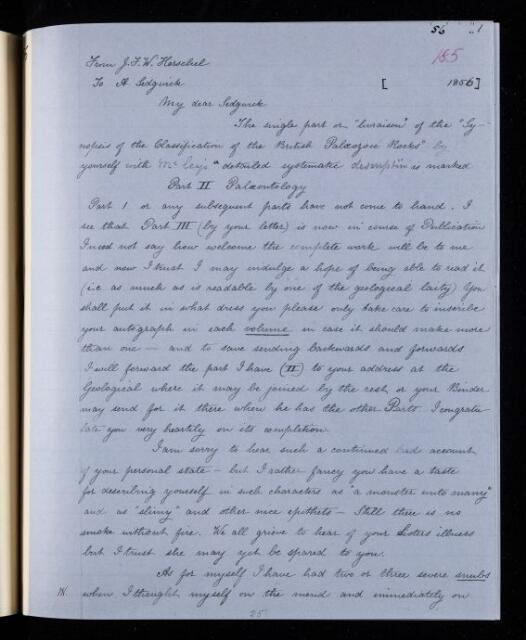 56 . 1
185
From J.F.W. Herschel
To A Sedgwick [ 1856]
My dear Sedgwick
The single part or "livraison" of the "Sy-
nopsis of the Classification of the British Palæozoic Rocks" by
yourself with McCoy's "detailed systematic description is marked
Part II Palæontology
Part 1 or any subsequent parts have not come to hand. I
see that Part III (by your letter) is now in course of Publication
I need not say how welcome the complete work will be to me
and now I trust I may indulge a hope of being able to read it
(i.e. as much as is readable by one of the geological laity) You
shall put it in what dress you please only take care to inscribe
your autograph in each volume in case it should make more
than one — and to save sending backwards and forwards
I will forward the part I have (II) to your address at the
Geological where it may be joined by the rest or your Binder
may send for it there when he has the other Parts. I congratu
late you very heartily on its completion.
I am sorry to hear such a continued bad account
of your personal state — but I rather fancy you have a taste
for describing yourself in such characters as "a monster unto many"
and as "slimy" and other nice epithets — Still there is no
smoke without fire. We all grieve to hear of your Sisters illness
but I trust she may yet be spared to you.
As for myself I have had two or three severe snubs
when I thought myself on the mend and immediately on
25